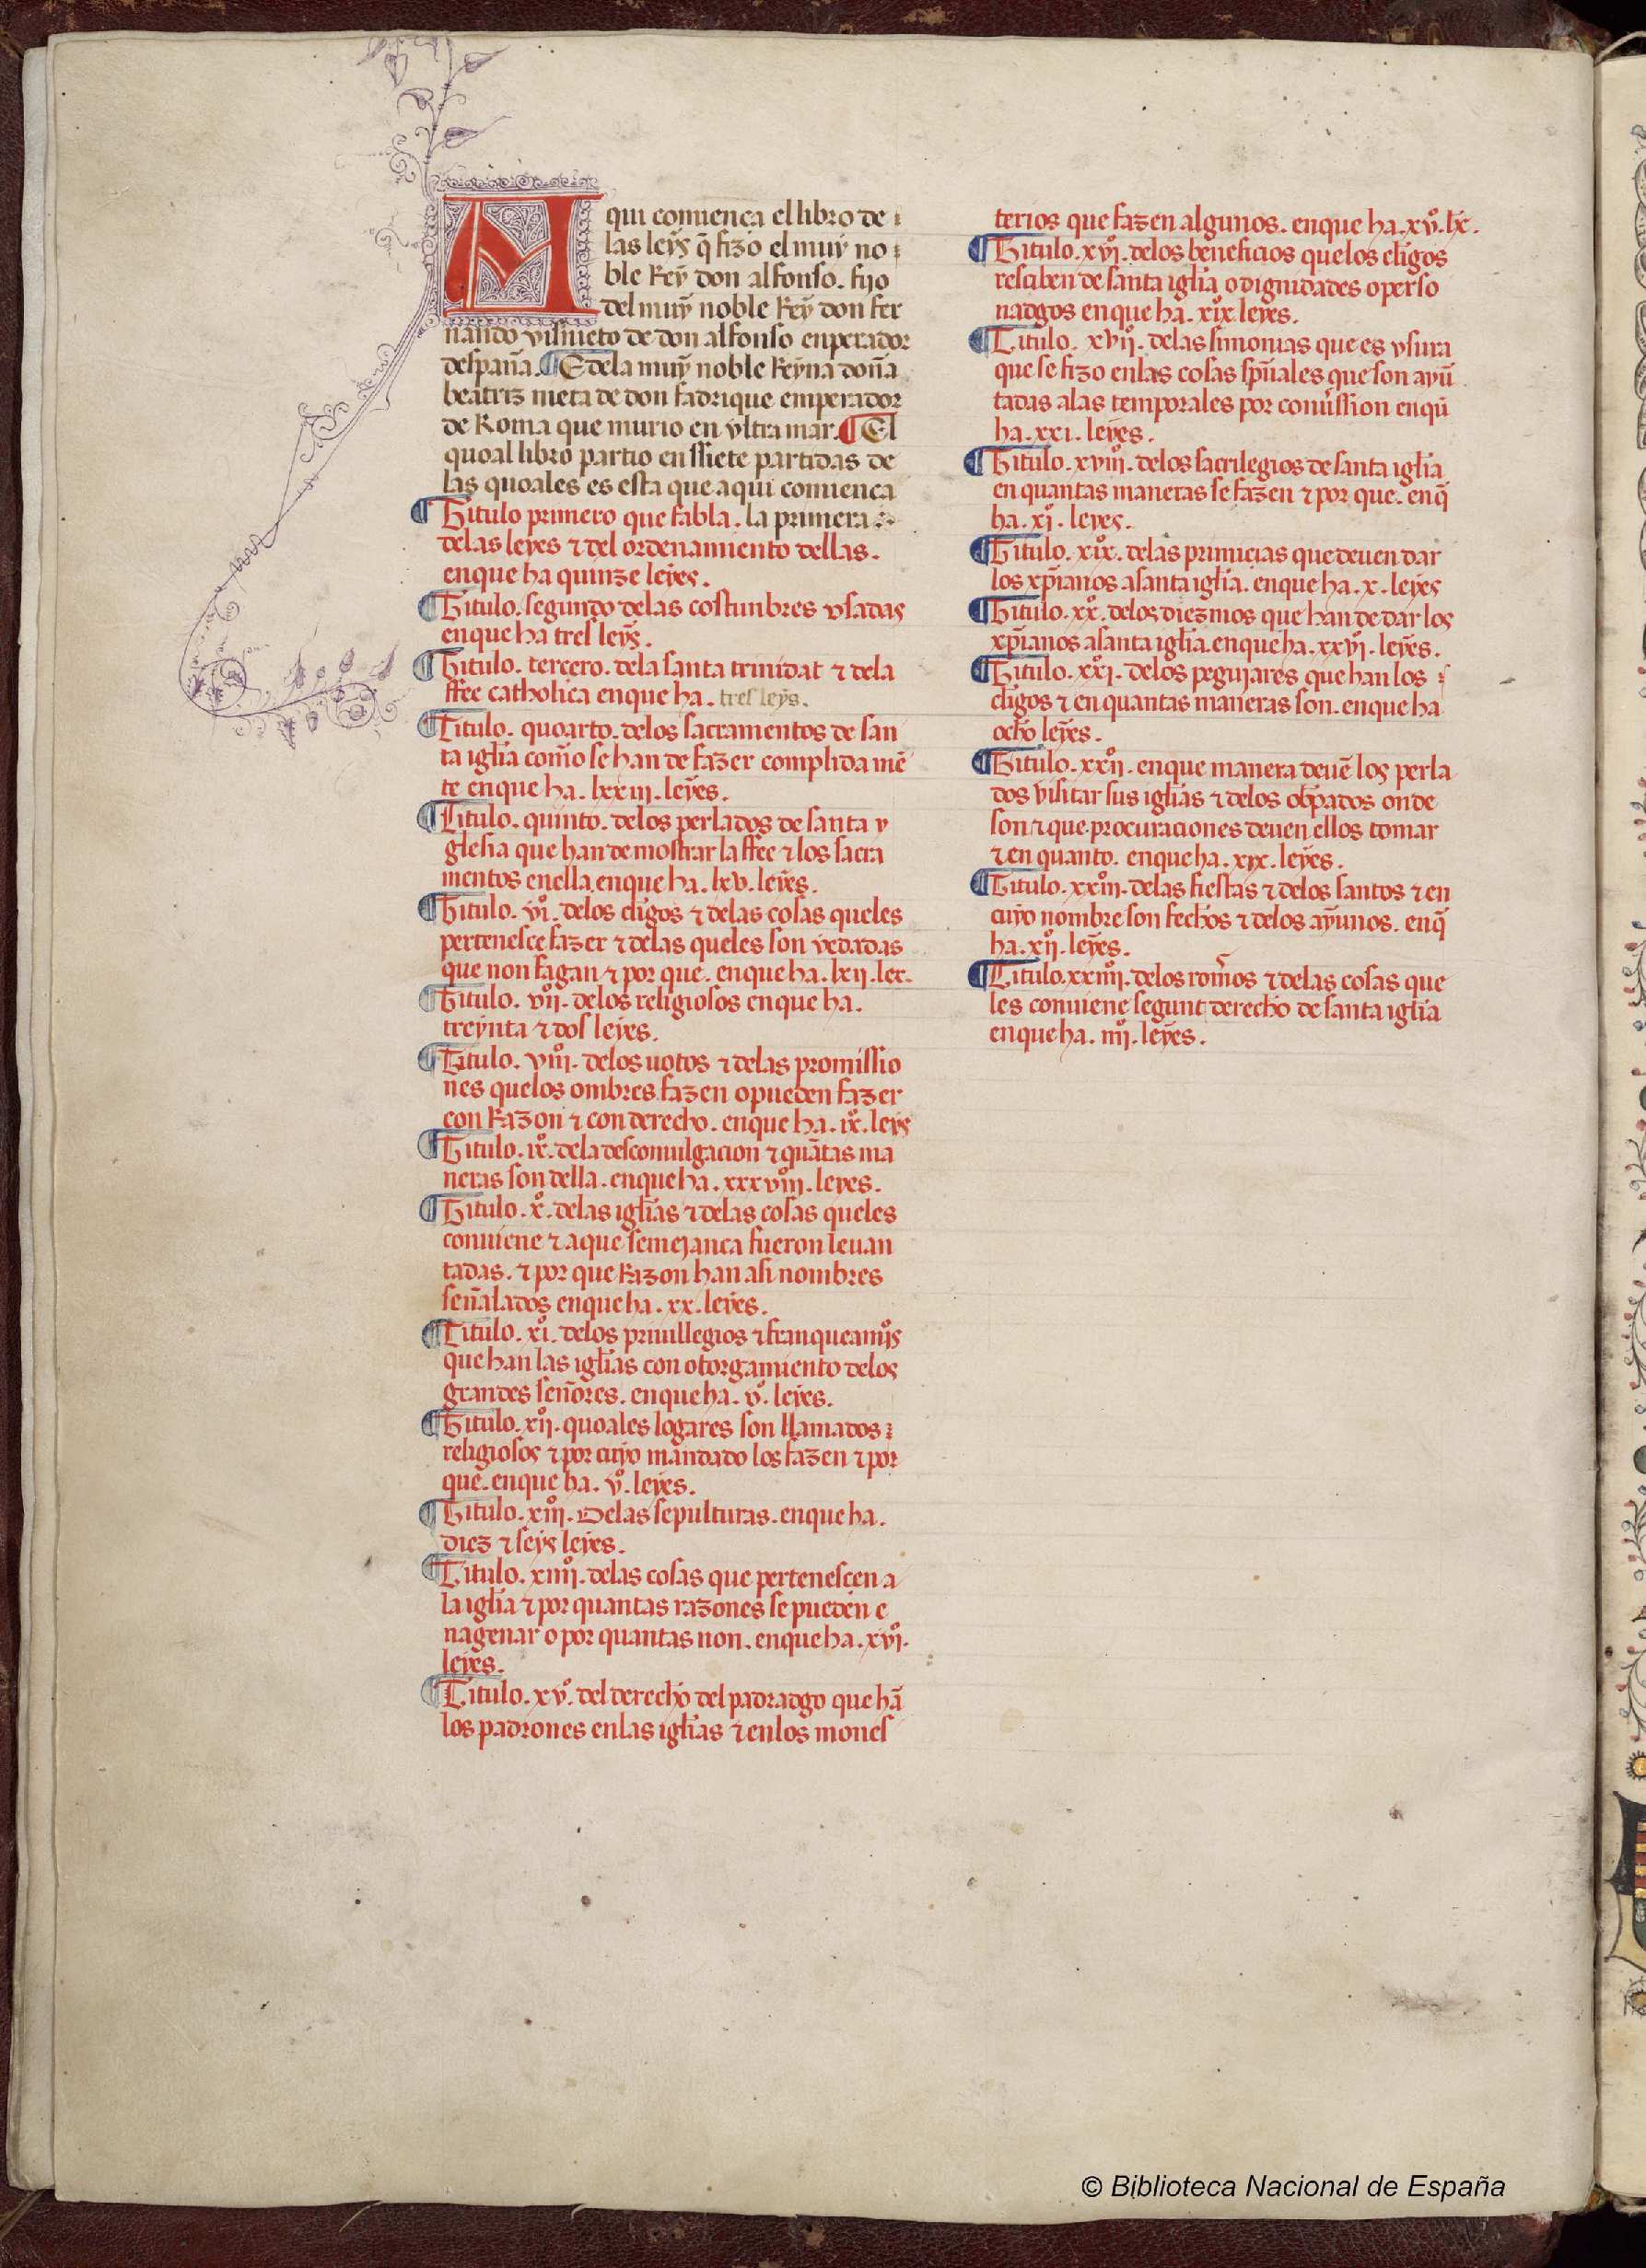 Aqui comiença el libro de
las leyꝭ q̃ fizo el muy no
ble Rey don alfonso. fijo
del muy noble Rey don fer
nando visnieto de don alfonso enperador
despaña. ¶ E dela muy noble Reyna doña
beatriz nieta de don fadrique emperador
de Roma que murio en vltra mar. ¶ El
quoal libro partio en ssiete partidas de
las quoales es esta que aqui comiença
¶ Titulo primero que fabla. la primera
delas leyes ⁊ del ordenamiento dellas.
enque ha quinze leyes.
¶ Titulo. segundo delas costunbres vsadas
enque ha tres leyꝭ.
¶ Titulo. tercero. dela santa trinidat ⁊ dela
ffee catholica enque ha. tres leyꝭ.
¶ Titulo. quoarto. delos sacramentos de san
ta igl̃ia como se han de fazer complida mẽ
te enque ha. lxxiij. leyes.
¶ Titulo. quinto. delos perlados de santa y
glesia que han de mostrar la ffee ⁊ los sacra
mentos enella enque ha. lxv. leyes.
¶ Titulo. vjº. delos cl̃igos ⁊ delas cosas queles
pertenesce fazer ⁊ delas queles son vedadas
que non fagan ⁊ por que. enque ha. lxij. lex.
¶ Titulo. vijº. delos religiosos enque ha.
treynta ⁊ dos leyes.
¶ Titulo. viijº. delos uotos ⁊ delas promissio
nes quelos ombres fazen o pueden fazer
con Razon ⁊ con derecho. enque ha. ixº. leyꝭ
¶ Titulo. ixº. dela descomulgacion ⁊ quãtas ma
neras son della. enque ha. xxxviijº. leyes.
¶ Titulo. xº. delas igl̃ias ⁊ delas cosas queles
conuiene ⁊ aque semejança fueron leuan
tadas. ⁊ por que Razon han asi nombres
señalados enque ha. xx. leyes.
¶ Titulo. xjº. delos priuillegios ⁊ franqueamjºs
que han las igl̃ias con otorgamiento delos
grandes señores. enque ha. vº. leyes.
¶ Titulo. xijº. quoales logares son llamados
religiosos ⁊ por cuyo mandado los fazen ⁊ por
que. enque ha. vº. leyes.
¶ Titulo. xiijº. Delas sepulturas. enque ha.
diez ⁊ seys leyes.
¶ Titulo. xiiijº. delas cosas que pertenescen a
la igl̃ia ⁊ por quantas razones se pueden e
nagenar o por quantas non. enque ha. xvjº.
leyes.
¶ Titulo. xvº. del derecho del padradgo que hã
los padrones enlas igl̃ias ⁊ enlos mones
terios que fazen algunos. enque ha. xvº. lx̃.
¶ Titulo. xvjº. delos beneficios quelos cl̃igos
resciben de santa igl̃ia o dignidades o perso
nadgos enque ha. xixº. leyes.
¶ Titulo. xvijº. delas simonias que es vsura
que se fizo enlas cosas sp̃uales que son ayũ
tadas alas temporales por comission enqũ
ha. xxi. leyes.
¶ Titulo. xviijº. delos sacrilegios de santa igl̃ia
en quantas maneras se fazen ⁊ por que. enq̃
ha. xjº. leyes.
¶ Titulo. xixº. delas primicias que deuen dar
los xp̃ianos a santa igl̃ia. enque ha. x. leyes
¶ Titulo. xxº. delos diezmos que han de dar los
xp̃ianos a santa igl̃ia. enque ha. xxvjº. leyes.
¶ Titulo. xxjº. delos pegujares que han los
cl̃igos ⁊ en quantas maneras son. enque ha
ocho leyes.
¶ Titulo. xxijº. enque manera deuẽ los perla
dos visitar sus igl̃ias ⁊ delos ob̃pados onde
son ⁊ que procuraciones deuen ellos tomar
⁊ en quanto. enque ha. xix. leyes.
¶ Titulo. xxiijº. delas fiestas ⁊ delos santos ⁊ en
cuyo nombre son fechos ⁊ delos ayunos. enq̃
ha. xijº. leyes.
¶ Titulo. xxiiijº. delos rom̃os ⁊ delas cosas que
les conuiene segunt derecho de santa igl̃ia
enque ha. iiijº. leyes.
© Biblioteca Nacional de España